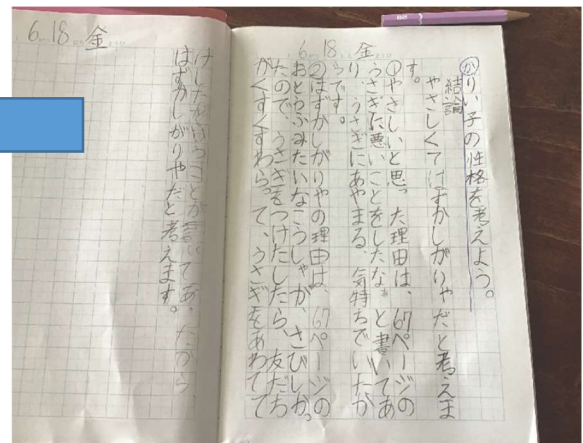 6.18 金
か りい子の性格を考えよう。
結論
やさしくてはずかしがりやだと考えま
す。
①やさしいと思った理由は、67ページの
うさぎに悪いことをしたな。と書いてあ
り、うさぎにあやまる、気持ちでいたか
らです。
②はずかしがりやの理由は、67ページの
おとうふみたいなこうしゃが、さびしか。
たので、うさぎをつけたしたら、友だち
がくすくすわらって、うさぎをあわてて
6.18 金
けしたをけすことが書いてあったから、
はずかしがりやだと考えます。